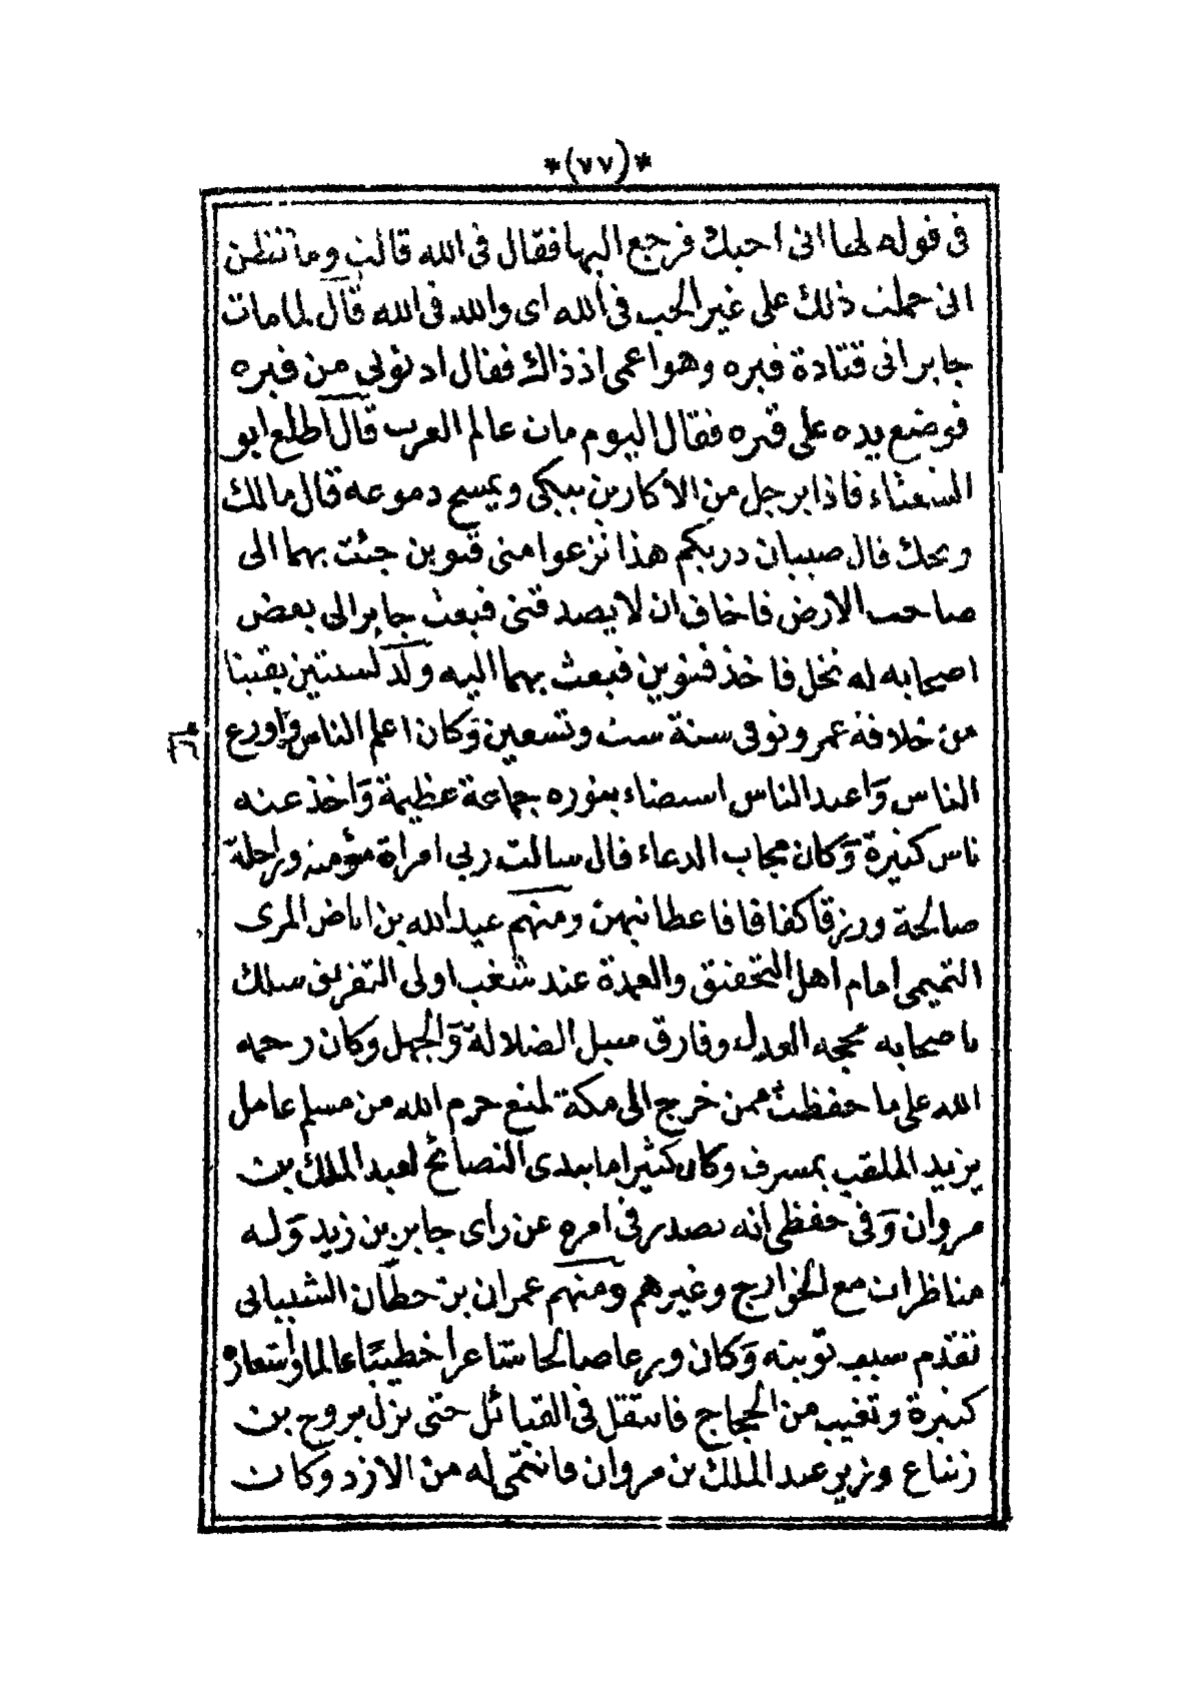 *(٧٧)*
فى قوله لها انى احبك فرجع اليها فقال فى الله قالت وما تظن
انى حملت ذلك على غير الحب فى الله اى والله فى الله قال لما مات
جابر اتى قتادة قبره وهو اعمى اذ ذاك فقال ادنونى من قبره
فوضع يده على قبره فقال اليوم مات عالم العرب قال اطلع ابو
الشعثاء فاذا برجل من الاكارين يبكى ويمسح دموعه قال مالك
ويحك قال صبيان دربكم هذا نزعوا منى قنوين جئت بهما الى
صاحب الارض فاخاف ان لا يصدقنى فبعث جابر الى بعض
اصحابه له نخل فاخذ قنوين فبعث بهما اليه ولد لسنتين بقيتا
من خلافة عمر وتوفى سنة ست وتسعين وكان اعلم الناس واورع
الناس واعبد الناس استضاء بنوره جماعة عظيمة واخذ عنه
ناس كثيرة وكان مجاب الدعاء قال سالت ربى امراة مؤمنة وراحلة
صالحة ورزقا كفافا فاعطانيهن ومنهم عبد الله بن اباض المرى
التميمى امام اهل التحقيق والعمدة عند شغب اولى التفريق سلك
باصحابه محجة العدل وفارق سبل الضلالة والجهل وكان رحمه
الله على ما حفظت ممن خرج الى مكة لمنع حرم الله من مسلم عامل
يزيد الملقب بمسرف وكان كثيرا ما يبدى النصائح لعبد الملك بن
مروان وفى حفظى انه يصدر فى امره عن راى جابر بن زيد وله
مناظرات مع الخوارج وغيرهم ومنهم عمران بن حطان الشيبانى
تقدم سبب توبته وكان ورعا صالحا شاعرا خطيبا عالما واشعاره
كثيرة وتغيب من الحجاج فانتقل فى القبائل حتى نزل بروح بن
زنباع وزير عبد الملك بن مروان فانتمى له من الازد وكان